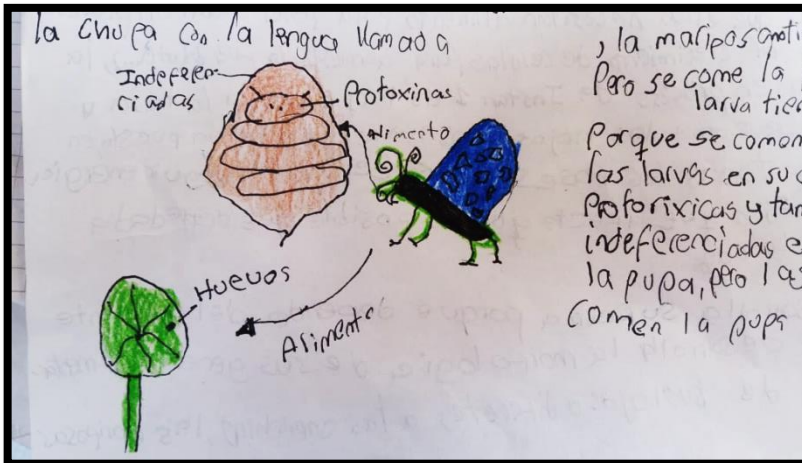 la chupa con la lengua llamada
Indeferen-
ciadas
Protoxinas
Alimento
Huevos
Alimento
, la mariposa
Pero se come la
larva tie
Porque se comen
las larvas en su
Proforixicas y tan
indeferenciadas e
la pupa, pero las
comen la pupa